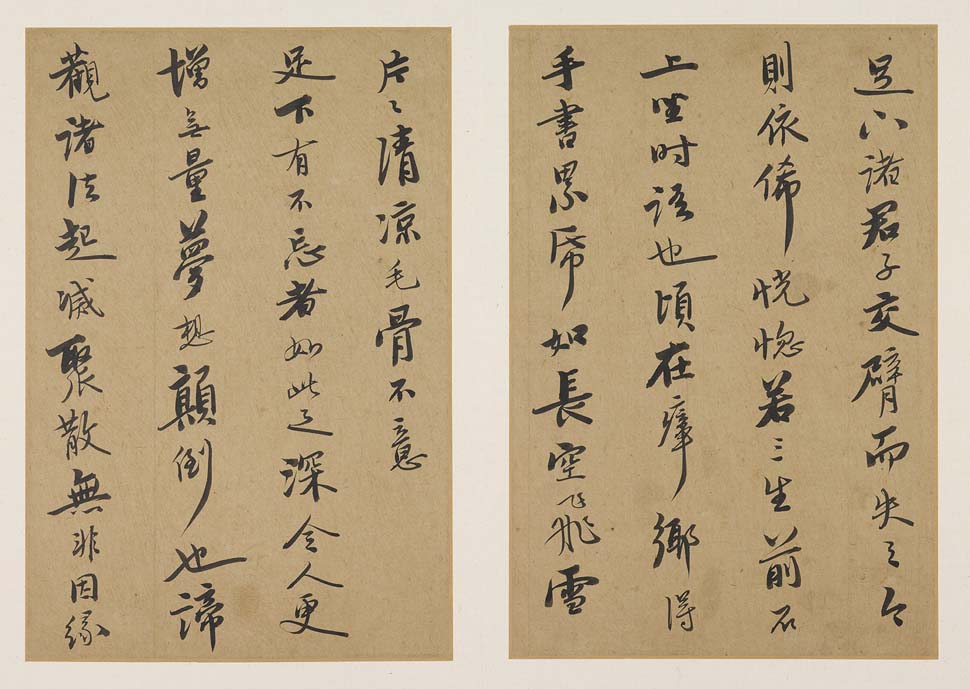 足下諸君子交臂而失之今
則依俙恍惚若三生前石
上坐时語也頃在瘴鄉得
手書累紙如長空飛雪
片々清凉毛骨不意
足下有不忘者如此之深令人更
增無量夢想顛倒也諦
觀諸法起滅聚散無非因緣